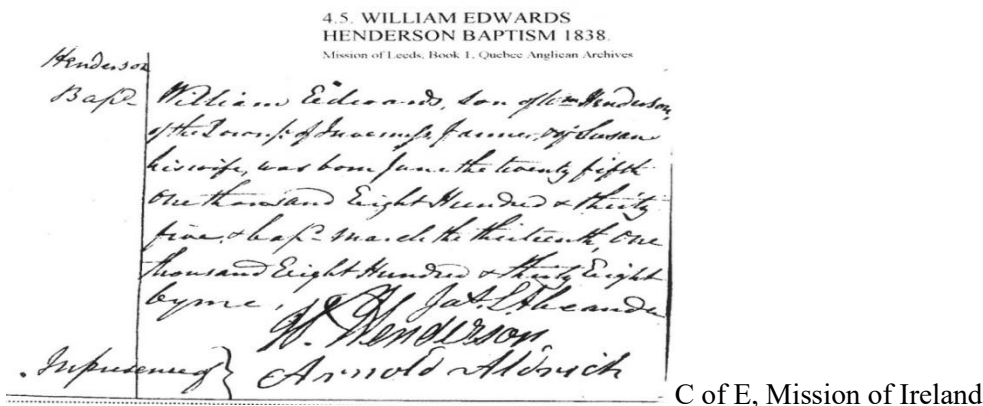 4.5. WILLIAM EDWARDS
HENDERSON BAPTISM 1838.
Mission of Leeds, Book 1, Quebec Anglican Archives
Henderson
Bapn William Edwards, son of Wm Henderson,
of the Townsp. of Inverness, farmer, & of Susan
his wife, was born June the twenty fifth
One thousand Eight Hundred & thirty
five, & bapn March the thirteenth, One
thousand Eight Hundred & thirty Eight
by me, Jas. L. Alexander
W. Henderson
In presence of } Arnold Aldrich
C of E, Mission of Ireland